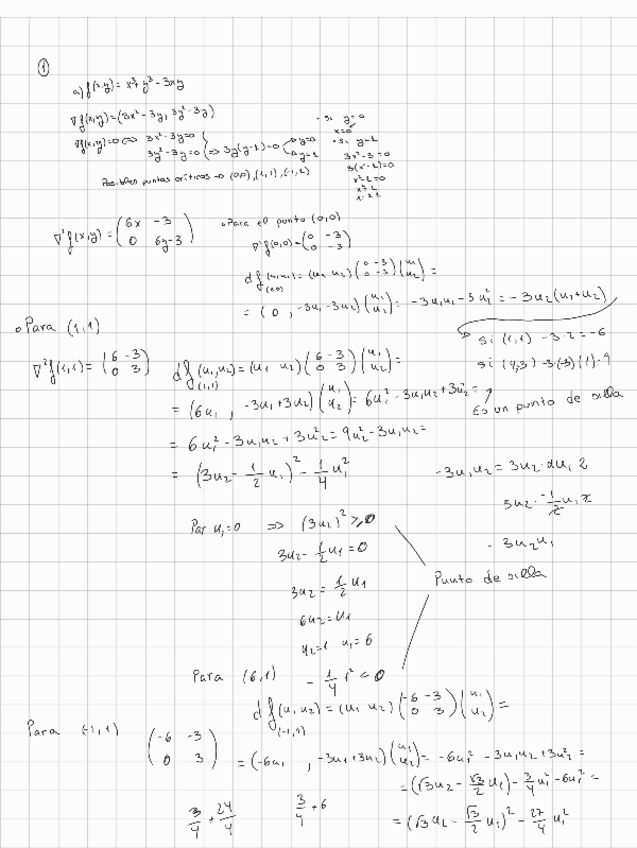 1
a) f(x,y) = x³ + y³ - 3xy
∇f(x,y) = (3x² - 3y, 3y² - 3y)
∇f(x,y) = 0 ⟺ 3x² - 3y = 0
3y² - 3y = 0 } ⟹ 3y(y-1) = 0 → y=0
→ y=1
· si y = 0
x=0
· si y=1
3x² - 3 = 0
3(x²-1) = 0
x² - 1 = 0
x² = 1
Posibles puntos críticos → (0,0), (1,1), (-1,1)
∇²f(x,y) = (6x -3
0 6y-3)
∘ Para el punto (0,0)
∇²f(0,0) = (0 -3
0 -3)
df(u₁,u₂) = (u₁ u₂) (0 -3
0 -3) (u₁
u₂) =
(0,0)
= (0, -3u₁ - 3u₂) (u₁
u₂) = -3u₁u₂ - 3u₂² = -3u₂(u₁+u₂)
si (1,1) -3·2 = -6
Es un punto de silla
∘ Para (1,1)
∇²f(1,1) = (6 -3
0 3)
df(u₁,u₂) = (u₁ u₂) (6 -3
0 3) (u₁
u₂) =
(1,1)
= (6u₁, -3u₁+3u₂) (u₁
u₂) = 6u₁² - 3u₁u₂ + 3u₂² =
= 6u₁² - 3u₁u₂ + 3u₂² = 9u₂² - 3u₁u₂ =
= (3u₂ - 1/2 u₁)² - 1/4 u₁²
-3u₁u₂ = 3u₂ · αu₁ 2
3u₂ · -1/2 u₁ 2
- 3u₂u₁
Par u₁=0 ⟹ (3u₂)² ≥ 0
3u₂ - 1/2 u₁ = 0
3u₂ = 1/2 u₁
6u₂ = u₁
u₂=1 u₁=6
Punto de silla
Para (6,1) - 1/4 1² < 0
Para (-1,1) (-6 -3
0 3)
df(u₁,u₂) = (u₁ u₂) (-6 -3
0 3) (u₁
u₂) =
(-1,1)
= (-6u₁, -3u₁+3u₂) (u₁
u₂) = -6u₁² - 3u₁u₂ + 3u₂² =
= (√3u₂ - √3/2 u₁) - 3/4 u₁² - 6u₁² =
3/4 + 24/4
3/4 + 6
= (√3u₂ - √3/2 u₁)² - 27/4 u₁²